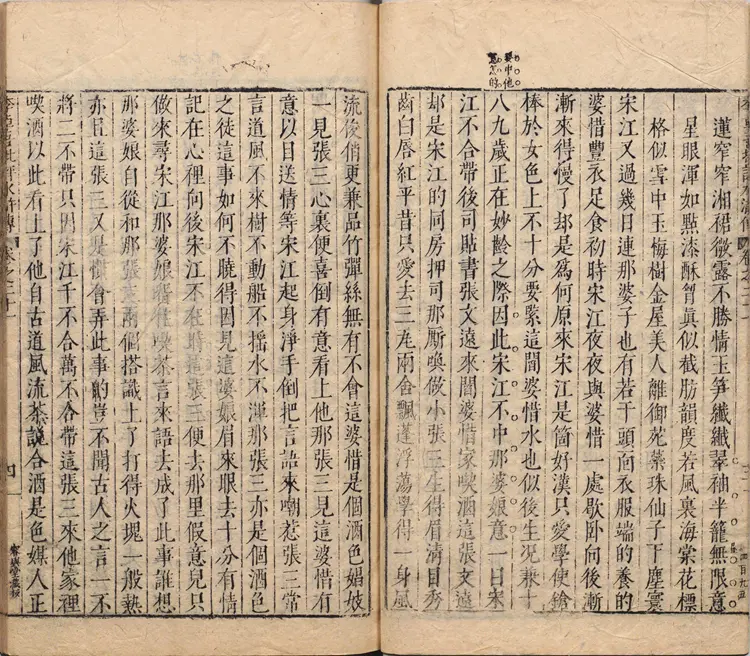 蓮窄窄湘裙微露不勝情玉笋纖纖翠袖半籠無限意
星眼渾如點漆酥胷真似截肪韻度若風裏海棠花標
格似雪中玉梅樹金屋美人離御苑蘂珠仙子下塵寰
宋江又過幾日連那婆子也有若干頭面衣服端的養的
婆惜豐衣足食初時宋江夜夜與婆惜一處歇卧向後漸
漸來得慢了却是爲何原來宋江是箇好漢只愛學使鎗
棒於女色上不十分要緊這閻婆惜水也似後生况兼十
八九歲正在妙齡之際因此宋江不中那婆娘意一日宋
江不合帶後司貼書張文遠來閻婆惜家喫酒這張文遠
却是宋江的同房押司那厮喚做小張三生得眉清目秀
齒白唇紅平昔只愛去三瓦兩舍飄蓬浮蕩學得一身風
要中他
意怎的
流俊俏更兼品竹彈絲無有不會這婆惜是個酒色娼妓
一見張三心裏便喜倒有意看上他那張三見這婆惜有
意以目送情等宋江起身淨手倒把言語來嘲惹張三常
言道風不來樹不動船不摇水不渾那張三亦是個酒色
之徒這事如何不曉得因見這婆娘眉來眼去十分有情
記在心裡向後宋江不在時這張三便去那里假意兒只
做來尋宋江那婆娘留住喫茶言來語去成了此事誰想
那婆娘自從和那張三兩個搭識上了打得火塊一般熱
亦且這張三又是慣會弄此事的豈不聞古人之言一不
將二不帶只因宋江千不合萬不合帶這張三來他家裡
喫酒以此看上了他自古道風流茶說合酒是色媒人正
卷之二十一
四